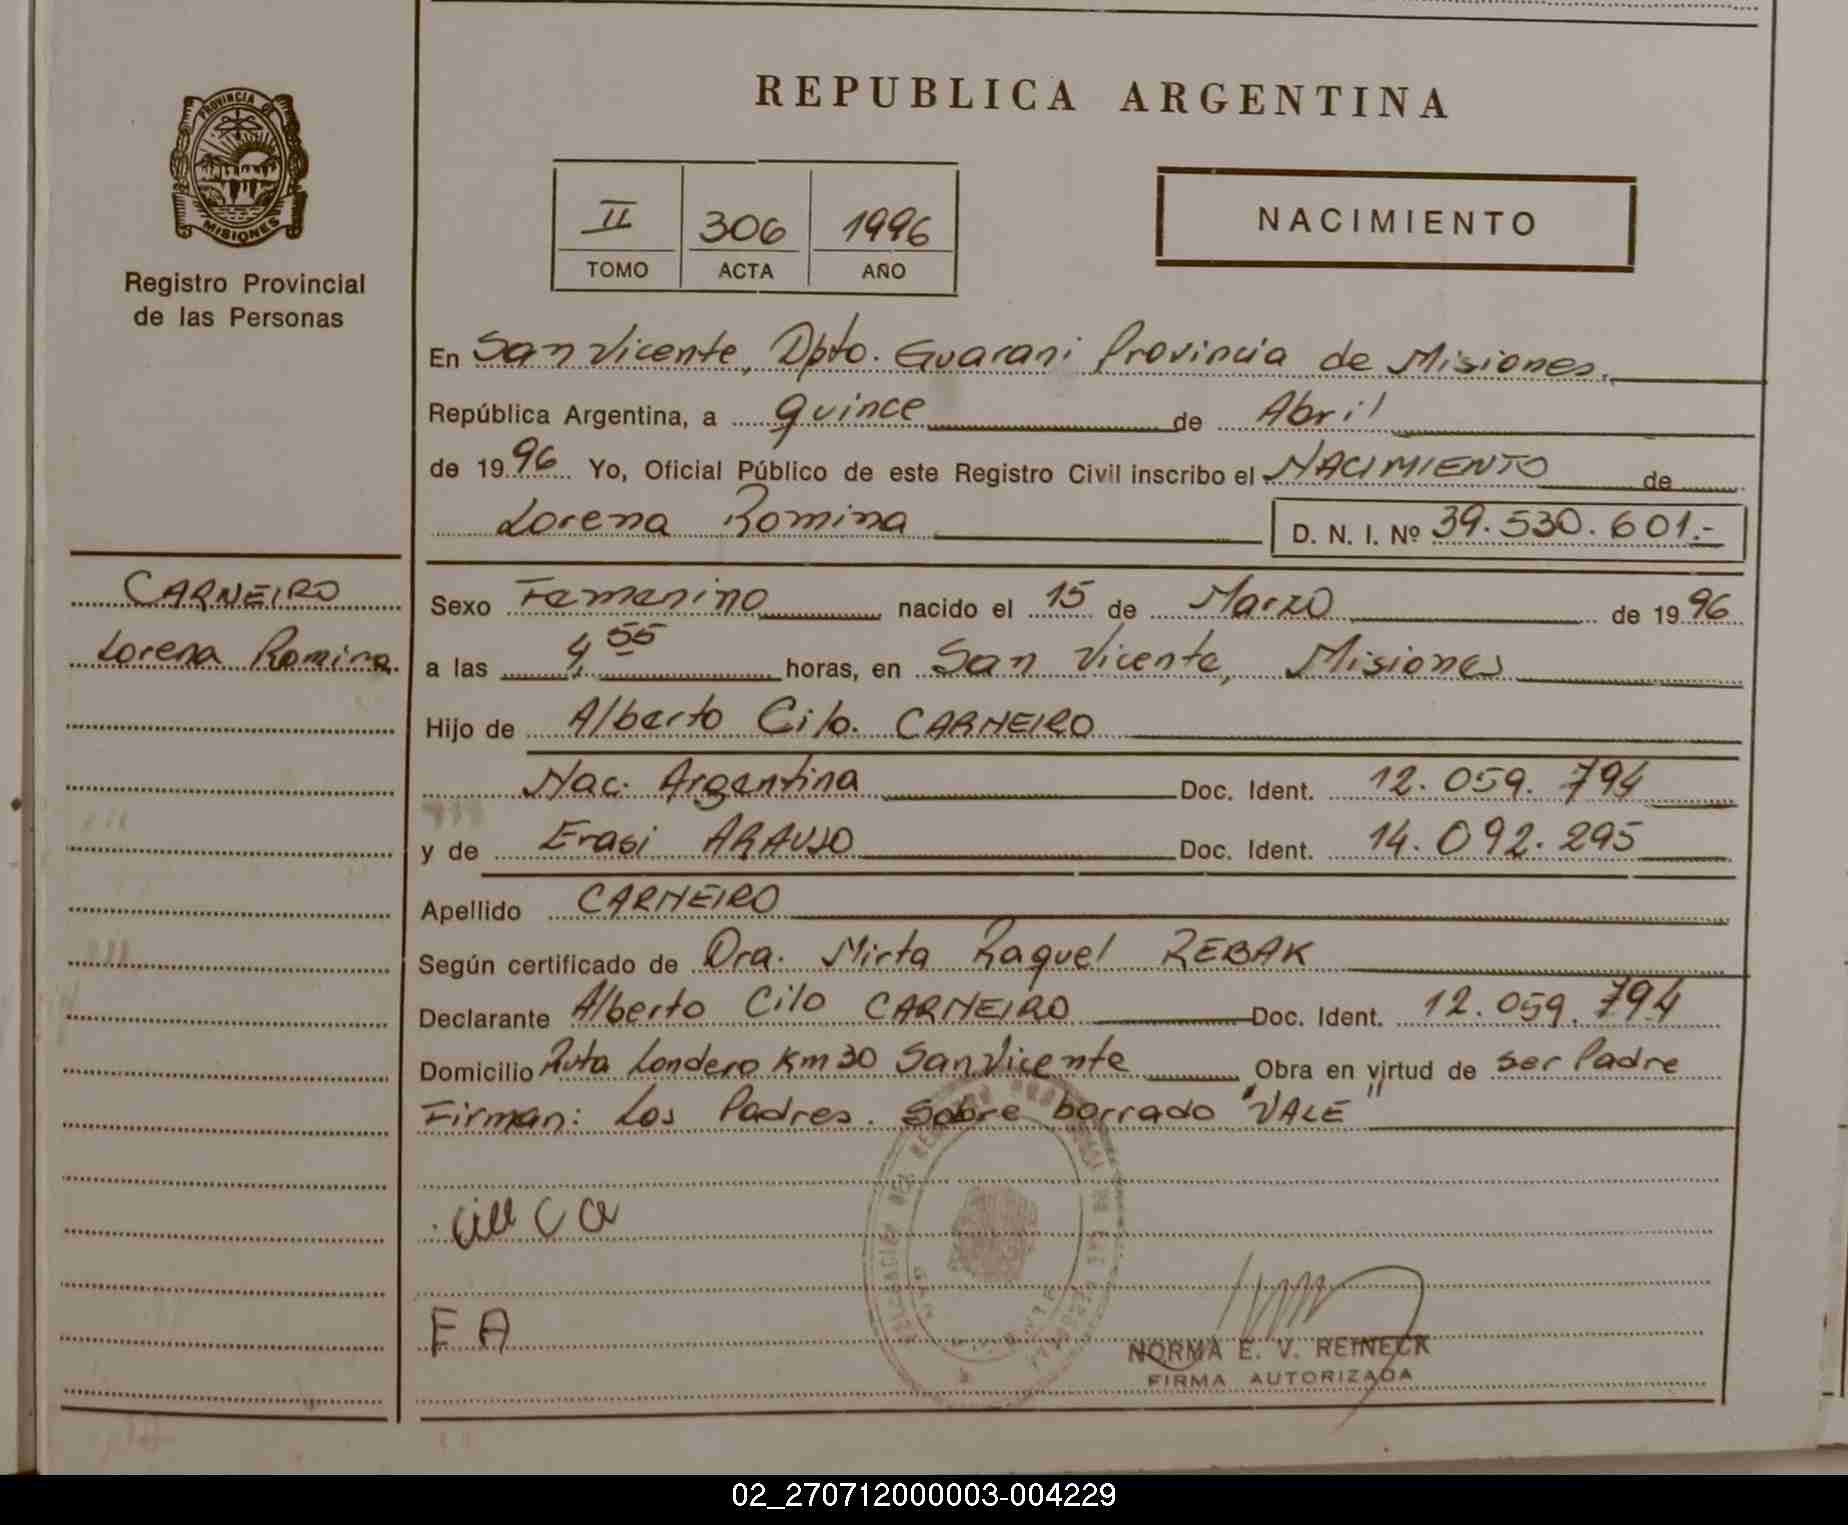 PROVINCIA DE
MISIONES
Registro Provincial
de las Personas
CARNEIRO
Lorena Romina
REPUBLICA ARGENTINA
II 306 1996
TOMO ACTA AÑO
NACIMIENTO
En San Vicente, Dpto. Guarani Provincia de Misiones.
República Argentina, a quince de Abril
de 1996 Yo, Oficial Público de este Registro Civil inscribo el NACIMIENTO de
Lorena Romina D. N. I. Nº 39.530.601.-
Sexo Femenino nacido el 15 de Marzo de 1996
a las 4,55 horas, en San Vicente, Misiones
Hijo de Alberto Cilo. CARNEIRO
Nac. Argentina Doc. Ident. 12.059.794
y de Erasi ARAUJO Doc. Ident. 14.092.295
Apellido CARNEIRO
Según certificado de Dra. Mirta Raquel REBAK
Declarante Alberto Cilo CARNEIRO Doc. Ident. 12.059.794
Domicilio Ruta Londero Km 30 San Vicente Obra en virtud de ser Padre
Firman: Los Padres. Sobre borrado "VALE"
E A
NORMA E. V. REINECK
FIRMA AUTORIZADA
02_270712000003-004229